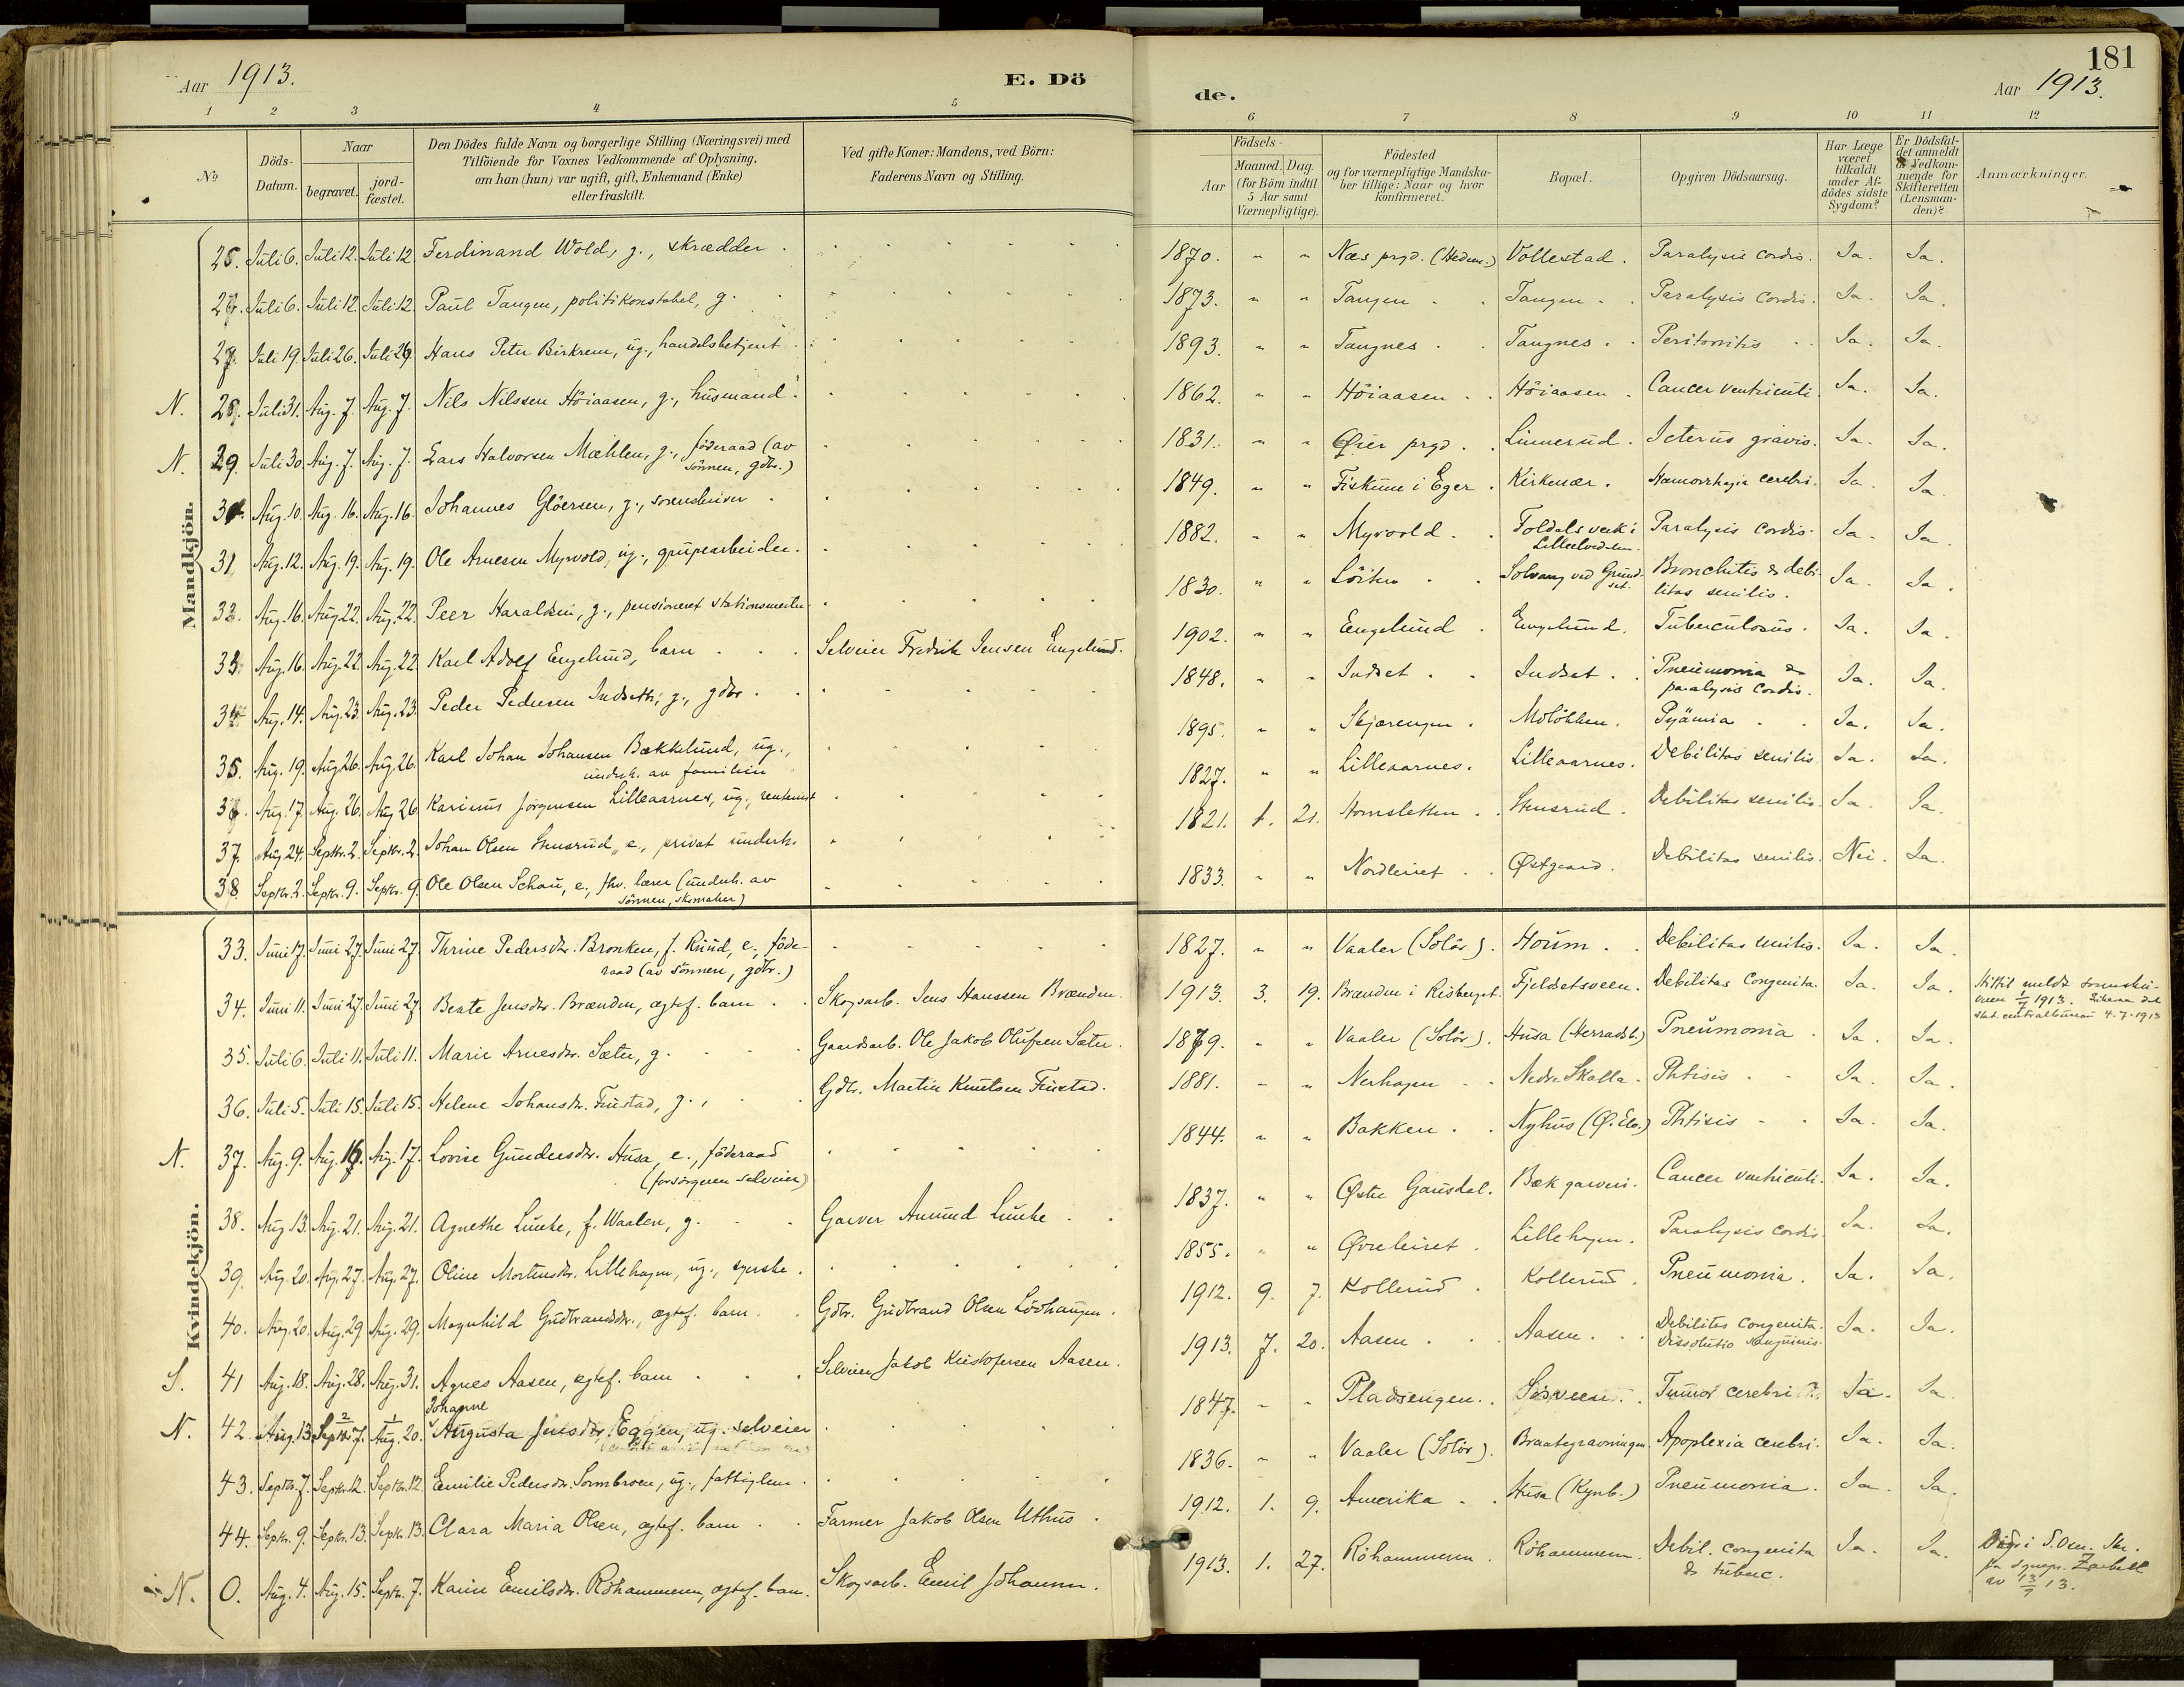 Aar 1913.
E. Dö
de.
181
Aar 1913.
1 2 3 4 5 6 7 8 9 10 11 12
No
Döds-Datum.
Naar
begravet.
jord-fæstet.
Den Dödes fulde Navn og borgerlige Stilling (Næringsvei) med
Tilföiende for Voxnes Vedkommende af Oplysning,
om han (hun) var ugift, gift, Enkemand (Enke)
eller fraskilt.
Ved gifte Koner: Mandens, ved Börn:
Faderens Navn og Stilling.
Födsels-
Aar
Maaned. Dag.
(for Börn indtil
5 Aar samt
Værnepligtige).
Födested
og for værnepligtige Mandska-
ber tillige: Naar og hvor
konfirmeret.
Bopæl.
Opgiven Dödsaarsag.
Har Læge
været
tilkaldt
under Af-
dödes sidste
Sygdom?
Er Dödsfal-
det anmeldt
til Vedkom-
mende for
Skifteretten
(Lensman-
den)?
Anmærkninger.
Mandkjön.
25. Juli 6. Juli 12. Juli 12 Ferdinand Wold, g., skrædder. 1870. " " Næs prgd. (Hedem.) Vollestad. Paralysis cordis. Ja. Ja.
Juli 6. Juli 12. Juli 12. Paul Tangen, politikonstabel, g. 1873. " " Tangen Tangen Paralysis cordis. Ja. Ja.
27. Juli 19. Juli 26. Juli 26 Hans Peter Birkrem, ug., handelsbetjent 1893. " " Tangnes Tangnes Peritonitis Ja. Ja.
N. 28. Juli 31. Aug. 7. Aug. 7. Nils Nilssen Höiaasen, g., husmand. 1862. " " Höiaasen Höiaasen Cancer ventriculi. Ja. Ja.
N. 29. Juli 30. Aug. 7. Aug. 7. Lars Halvorsen Mæhlen, g., föderaad (av
sönnen, gdbr.) 1831. " " Øier prgd. Linnerud. Icterus gravis. Ja. Ja.
30. Aug. 10. Aug. 16. Aug. 16. Johannes Glöersen, g., sorenskriver 1849. " " Fiskum i Eger. Kirkenær. Hæmorrhagia cerebri. Ja. Ja.
31. Aug. 12. Aug. 19. Aug. 19. Ole Arnesen Myrvold, ug., grupearbeider. 1882. " " Myrvold Foldals verk i
Lilleelvedalen. Paralysis cordis. Ja. Ja.
32. Aug. 16. Aug. 22. Aug. 22. Peer Haraldsen, g., pensioneret stationsmester 1830. " " Löiten Solvang ved Grund-
set. Bronchitis & debi-
litas senilis. Ja. Ja.
33. Aug. 16. Aug. 22. Aug. 22 Karl Adolf Engelund, barn Selveier Fredrik Jensen Engelund. 1902. " " Engelund Engelund. Tuberculosis. Ja. Ja.
34. Aug. 14. Aug. 23. Aug. 23. Peder Pedersen Indseth, g., gdbr. 1848. " " Indset Indset Pneumonia &
paralysis cordis. Ja. Ja.
35. Aug. 19. Aug. 26. Aug. 26. Karl Johan Johansen Bækkelund, ug.,
underh. av familien 1895. " " Skjærengen Molökken. Pyämia Ja. Ja.
36. Aug. 17. Aug. 26. Aug. 26. Karinus Jörgensen Lilleaarnes, ug., rentenist 1827. " " Lilleaarnes. Lilleaarnes. Debilitas senilis. Ja. Ja.
37. Aug. 24. Septbr. 2. Septbr. 2. Johan Olsen Stensrud, e., privat underh. 1821. 1. 21. Homsletten Stensrud. Debilitas senilis. Ja. Ja.
38. Septbr. 2. Septbr. 9. Septbr. 9. Ole Olsen Schau, e., fhv. lærer (underh. av
sönnen, skomaker) 1833. " " Nordleiret Østgaard. Debilitas senilis. Nei. Ja.
Kvindekjön.
33. Juni 17. Juni 27. Juni 27 Thrine Pedersdtr. Bronken, f. Ruud, e., föde-
raad (av sönnen, gdbr.) 1827. " " Vaaler (Solör). Houm. Debilitas senilis. Ja. Ja.
34. Juni 11. Juni 27. Juni 27 Beate Jensdtr. Brænden, ægtef. barn Skogsarb. Jens Hanssen Brænden. 1913. 3. 19. Brænden i Risberget. Fjeldsetsveen. Debilitas congenita. Ja. Ja.
1/7 1913.
4-7-1913
35. Juli 6. Juli 11. Juli 11. Marie Arnesdtr. Sæter, g. Gaardsarb. Ole Jakob Olufsen Sæter. 1879. " " Vaaler (Solör). Husa (Herradsb.) Pneumonia Ja. Ja.
36. Juli 5. Juli 15. Juli 15. Helene Johansdtr. Finstad, g., Gdbr. Martin Knutsen Finstad. 1881. " " Nerhagen Nedre Skalla. Phtisis Ja. Ja.
N. 37. Aug. 9. Aug. 16. Aug. 17. Lovise Gundersdtr. Husa, e., föderaad
(forsörgeren selveier) 1844. " " Bakken Nyhus (Ø. Elv.) Phtisis Ja. Ja.
38. Aug. 13. Aug. 21. Aug. 21. Agnethe Lunke, f. Waalen, g. Garver Amund Lunke 1837. " " Østre Gausdal. Bæk garveri. Cancer ventriculi. Ja. Ja.
39. Aug. 20. Aug. 27. Aug. 27. Oline Mortensdtr. Lillehagen, ug., syerske. 1855. " " Øvreleiret Lillehagen. Paralysis cordis. Ja. Ja.
40. Aug. 20. Aug. 29. Aug. 29. Magnhild Gudbrandsdtr., ægtef. barn. Gdbr. Gudbrand Olsen Lövhaugen. 1912. 9. 7. Kollerud Kollerud. Pneumonia. Ja. Ja.
S. 41 Aug. 18. Aug. 28. Aug. 31. Agnes Aasen, ægtef. barn Selveier Jakob Kristofersen Aasen. 1913. 7. 20. Aasen Aasen Debilitas congenita.
Dissolutio sanguinis. Ja. Ja.
N. 42. Aug. 13 Septbr. 7. Aug. 20. Johanne
Augusta Jensdtr. Eggen, ug. selveier 1847. " " Pladsengen. Tumor cerebri ?. Ja. Ja.
43. Septbr. 7. Septbr. 12. Septbr. 12. Emilie Pedersdtr. Sormbroen, ug., fattiglem. 1836. " " Vaaler (Solör). Braategravningen. Apoplexia cerebri. Ja. Ja.
44. Septbr. 9. Septbr. 13. Septbr. 13. Clara Maria Olsen, ægtef. barn Farmer Jakob Olsen Uthus 1912. 1. 9. Amerika Husa (Kynb.) Pneumonia. Ja. Ja.
N. 0. Aug. 4. Aug. 15. Septbr. 7. Karin Emilsdtr. Röhammeren, ægtef. barn. Skogsarb. Emil Johansen. 1913. 1. 27. Röhammeren. Röhammeren. Debil. congenita
& tuberc. Ja. Ja.